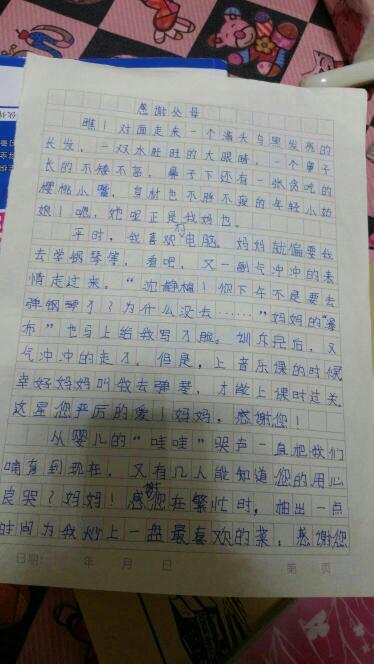 感谢父母
瞧！对面走来一个满头乌黑发亮的
长发，一双水旺旺的大眼睛，一个鼻子
长的不矮不高，鼻子下还有一张贪吃的
樱桃小嘴，身材也不胖不瘦的年轻小奶
娘！嗯，她呢正是我妈也。
平时，我喜欢打电脑，妈妈就偏要我
去学钢琴等，看吧，又一副气冲冲的表
情走过来，“沈静梅！你下午不是要去
弹钢琴了？为什么没去……”妈妈的“瀑
布”也马上给我写了脸。训斥完后，又
气冲冲的走了。但是，上音乐课的时候
幸好妈妈叫我去弹琴，才能上课时过关。
这是您严厉的爱！妈妈，感谢您！
从婴儿的“哇哇”哭声一直把我们
哺育到现在，又有几人能知道您的用心
良哭？妈妈！感谢您在繁忙时，抽出一点
时间为我炒上一盘最喜欢的菜，感谢您
日期： 年 月 日 第 页